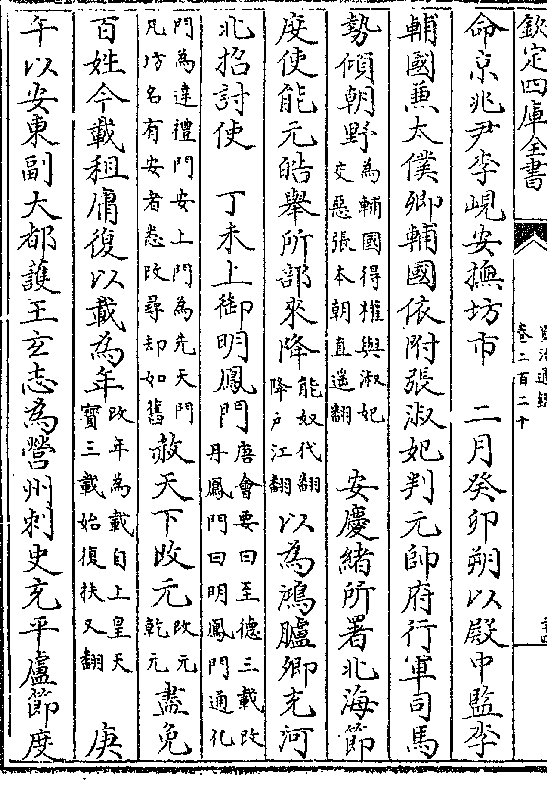 欽定四庫全書
卷二百二十
命京兆尹李峴安撫坊市　二月癸卯朔以殿中監李
輔國兼太僕卿輔國依附張淑妃判元帥府行軍司馬
勢傾朝野為輔國得權與淑妃交惡張本朝直遥翻　安慶緒所署北海節
度使能元皓舉所部來降能奴代翻降户江翻以為鴻臚卿充河
北招討使　丁未上御明鳳門唐會要曰至德三載改丹鳳門曰明鳳門通化
門為達禮門安上門為先天門凡坊名有安者悉改尋却如舊赦天下改元改元乾元盡免
百姓今載租庸復以載為年改年為載自上皇天寶三載始復扶又翻　庚
午以安東副大都護王玄志為營州刺史充平盧節度